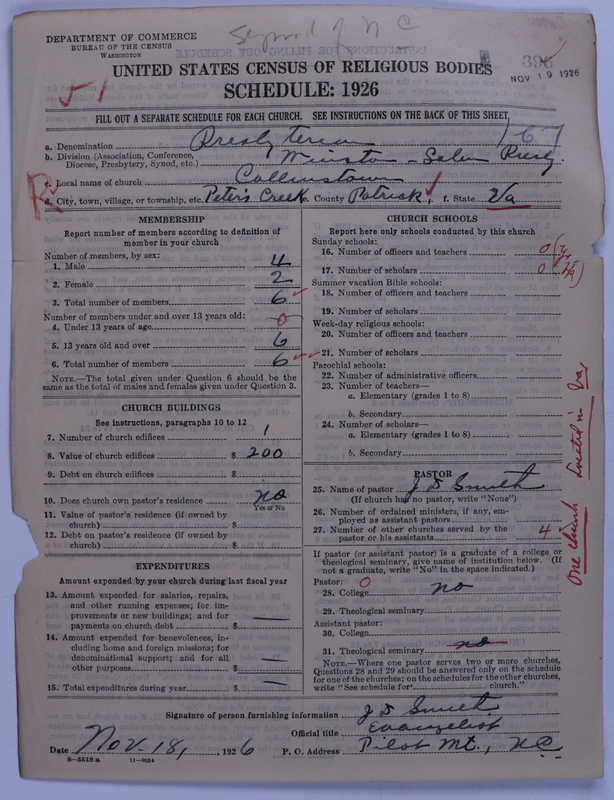 Synod of N C
DEPARTMENT OF COMMERCE
BUREAU OF THE CENSUS
WASHINGTON
396
NOV 19 1926
UNITED STATES CENSUS OF RELIGIOUS BODIES
SCHEDULE: 1926
51
FILL OUT A SEPARATE SCHEDULE FOR EACH CHURCH. SEE INSTRUCTIONS ON THE BACK OF THIS SHEET
a. Denomination Presbyterian 167
b. Division (Association, Conference, Diocese, Presbytery, Synod, etc.) Winston-Salem Presby.
c. Local name of church Collinstown
R
d. City, town, village, or township, etc. Peters Creek e. County Patrick, f. State Va
MEMBERSHIP
Report number of members according to definition of
member in your church
Number of members, by sex:
1. Male 4
2. Female 2
3. Total number of members 6
Number of members under and over 13 years old:
4. Under 13 years of age 0
5. 13 years old and over 6
6. Total number of members 6
NOTE.—The total given under Question 6 should be the
same as the total of males and females given under Question 3.
CHURCH BUILDINGS
See instructions, paragraphs 10 to 12
7. Number of church edifices 1
8. Value of church edifices $ 200
9. Debt on church edifices $
10. Does church own pastor's residence no
Yes or No
11. Value of pastor's residence (if owned by
church) $
12. Debt on pastor's residence (if owned by
church) $
EXPENDITURES
Amount expended by your church during last fiscal year
13. Amount expended for salaries, repairs,
and other running expenses; for im-
provements or new buildings; and for
payments on church debt $ —
14. Amount expended for benevolences, in-
cluding home and foreign missions; for
denominational support; and for all
other purposes $ —
15. Total expenditures during year $ —
CHURCH SCHOOLS
Report here only schools conducted by this church
Sunday schools:
16. Number of officers and teachers 0
17. Number of scholars 0
Summer vacation Bible schools:
18. Number of officers and teachers
19. Number of scholars
Week-day religious schools:
20. Number of officers and teachers
21. Number of scholars
Parochial schools:
22. Number of administrative officers
23. Number of teachers—
a. Elementary (grades 1 to 8)
b. Secondary
24. Number of scholars—
a. Elementary (grades 1 to 8)
b. Secondary
PASTOR
25. Name of pastor J S Smith
(If church has no pastor, write "None")
26. Number of ordained ministers, if any, em-
ployed as assistant pastors
27. Number of other churches served by the
pastor or his assistants 4
If pastor (or assistant pastor) is a graduate of a college or
theological seminary, give name of institution below. (If
not a graduate, write "No" in the space indicated.)
Pastor: 0
28. College no
29. Theological seminary
Assistant pastor:
30. College
31. Theological seminary no
NOTE.—Where one pastor serves two or more churches,
Questions 28 and 29 should be answered only on the schedule
for one of the churches; on the schedules for the other churches,
write "See schedule for church."
One church located in Va
Signature of person furnishing information J S Smith
Official title Evangelist
Date Nov. 18, 1926 P. O. Address Pilot Mt., N.C.
8—5518 a 11—9054